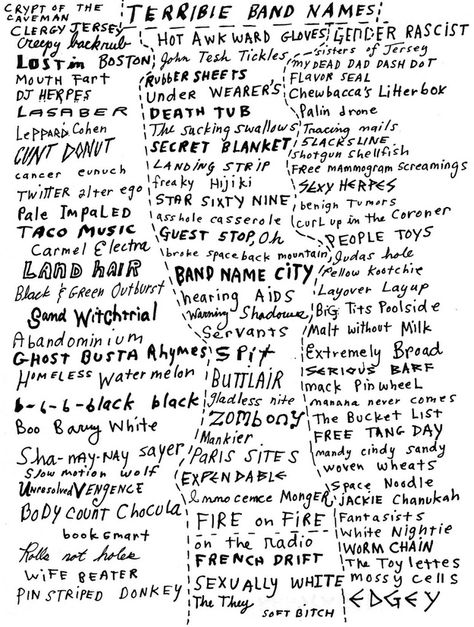 TERRIBLE BAND NAMES
CRYPT OF THE
CAVEMAN
CLERGY JERSEY
Creepy backrub
LOST in BOSTON
MOUTH FART
DJ HERPES
LASABER
LEPPARD Cohen
CUNT DONUT
cancer eunuch
TWITTER alter ego
Pale ImPaLED
TACO MUSIC
Carmel Electra
LAND HAIR
Black & Green Outburst
Sand Witchtrial
Abandominium
GHOST BUSTA RHYMES
HOMELESS Watermelon
b-6-6-black black
Boo Barry White
Sha-nAy-NAY sayer
Slow motion wolf
UnresolvedVENGENCE
BODY COUNT CHOCULA
book smart
Rolls not holes
WIFE BEATER
PIN STRIPED DONKEY
HOT AWKWARD GLOVES
John Tesh Tickles
RUBBER SHEETS
UNDER WEARER'S
DEATH TUB
The sucking swallows
SECRET BLANKET
LANDING STRIP
freaky Hijiki
STAR SIXTY NINE
asshole casserole
GUEST STOP, Oh
broke spaceback mountain
BAND NAME CITY
hearing AIDS
Warning Shadows
Servants
SPIT
BUTTLAIR
gladless nite
ZOMBONY
Mankier
PARIS SITES
EXPENDABLE
Innocence Monger
FIRE on FIRE
on the radio
FRENCH DRIFT
SEXUALLY WHITE
The They
SOFT BITCH
GENDER RASCIST
sisters of Jersey
MY DEAD DAD DASH DOT
FLAVOR SEAL
Chewbacca's Litterbox
Palin drone
Tracing mails
SLACKSLINE
shotgun shellfish
FREE mammogram screamings
SEXY HERPES
benign Tumors
curl up in the Coroner
PEOPLE TOYS
Judas hole
Fellow Kootchie
Layover Layup
BIG Tits Poolside
Malt without Milk
Extremely Broad
SERIOUS BARF
mack Pinwheel
manana never comes
The Bucket List
FREE TANG DAY
mandy cindy sandy
woven wheats
Space Noodle
JACKIE Chanukah
Fantasists
White Nightie
WORM CHAIN
The Toylettes
mossy cells
EDGEY